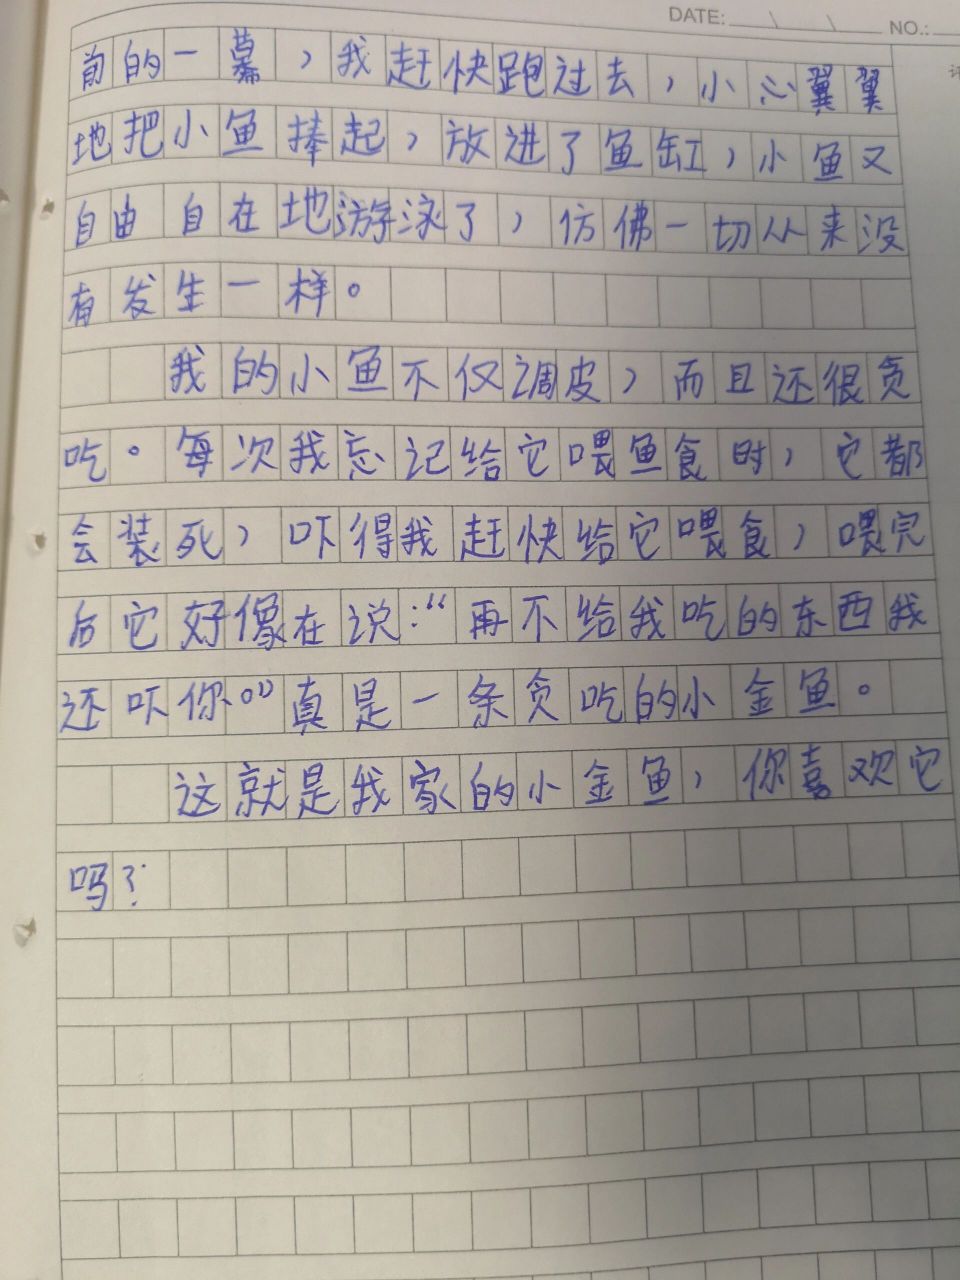 DATE: NO.:
前的一幕，我赶快跑过去，小心翼翼
地把小鱼捧起，放进了鱼缸，小鱼又
自由自在地游泳了，仿佛一切从来没
有发生一样。
我的小鱼不仅调皮，而且还很贪
吃。每次我忘记给它喂鱼食时，它都
会装死，吓得我赶快给它喂食，喂完
后它好像在说：“再不给我吃的东西我
还吓你。”真是一条贪吃的小金鱼。
这就是我家的小金鱼，你喜欢它
吗？